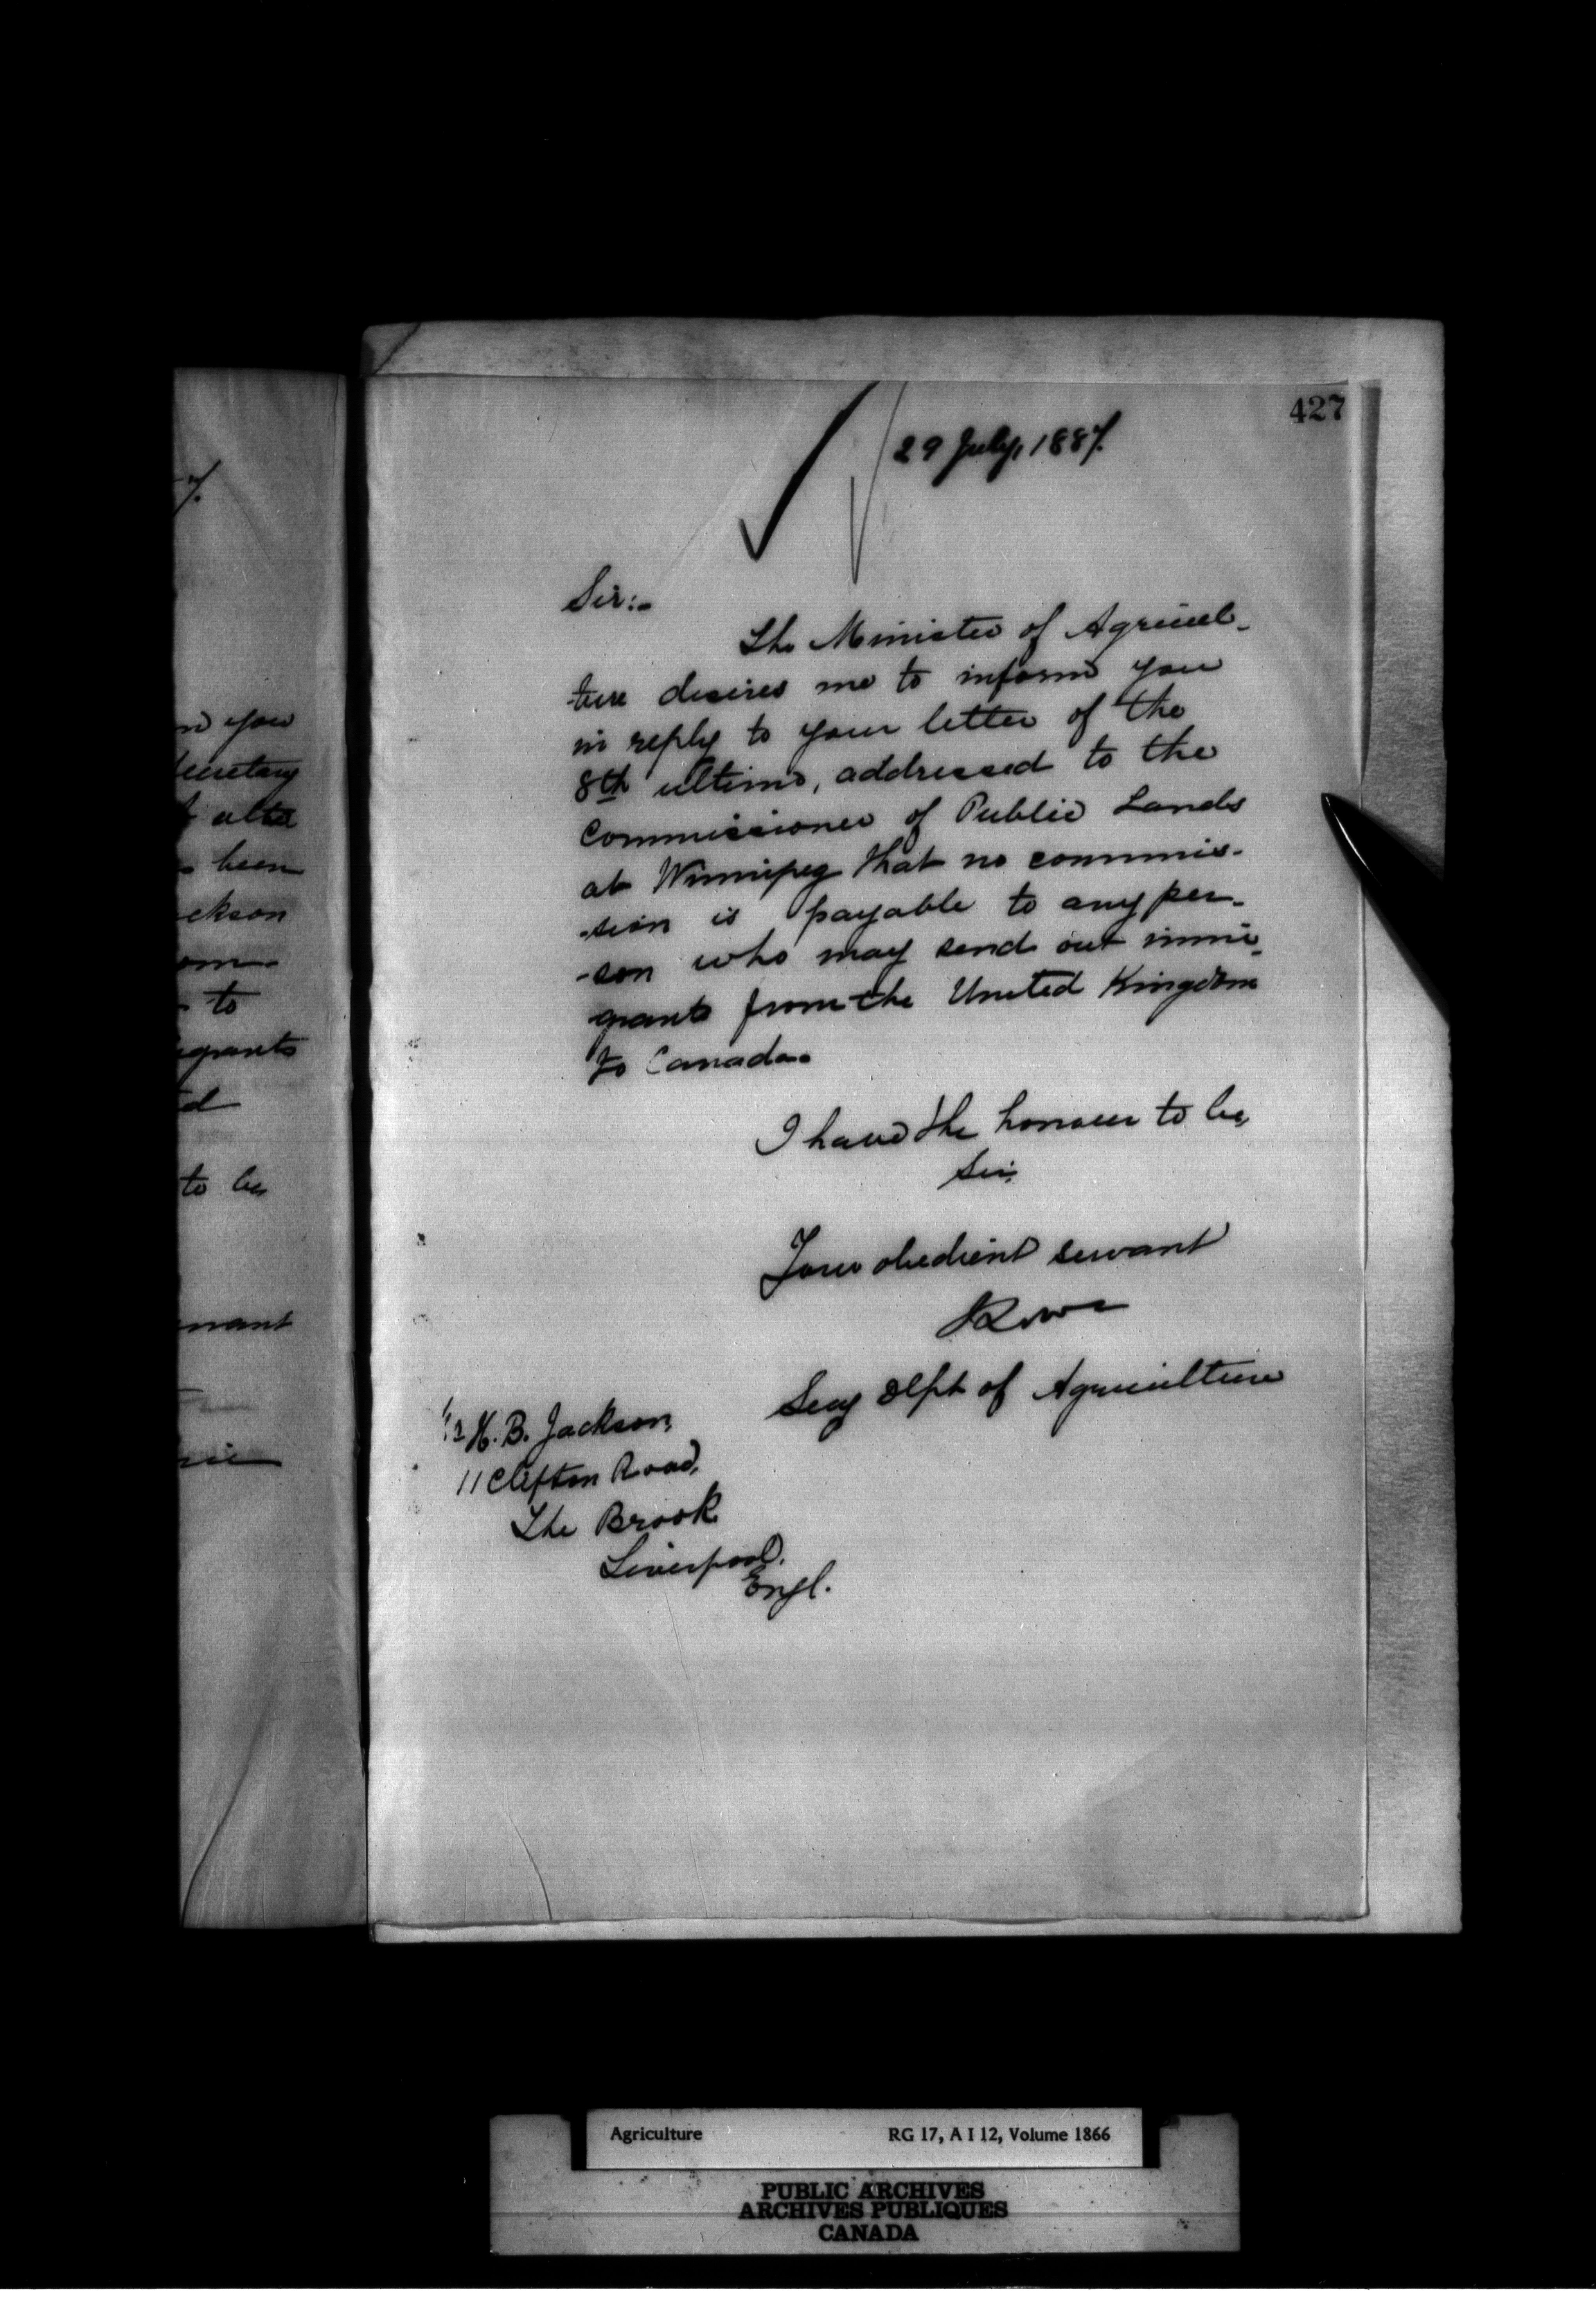 427
29 July, 1887.
Sir:-
The Minister of Agricul-
-ture desires me to inform you
in reply to your letter of the
8th ultimo, addressed to the
Commissioner of Public Lands
at Winnipeg that no commis-
-sion is payable to any per-
-son who may send out immi-
grants from the United Kingdom
to Canada.
I have the honour to be,
Sir,
Your obedient servant
Secy Dept of Agriculture
H. B. Jackson,
11 Clifton Road,
The Brook
Liverpool.
Engl.
7.
you
been
ckson
to
grants
to be,
Agriculture RG 17, A I 12, Volume 1866
PUBLIC ARCHIVES
ARCHIVES PUBLIQUES
CANADA